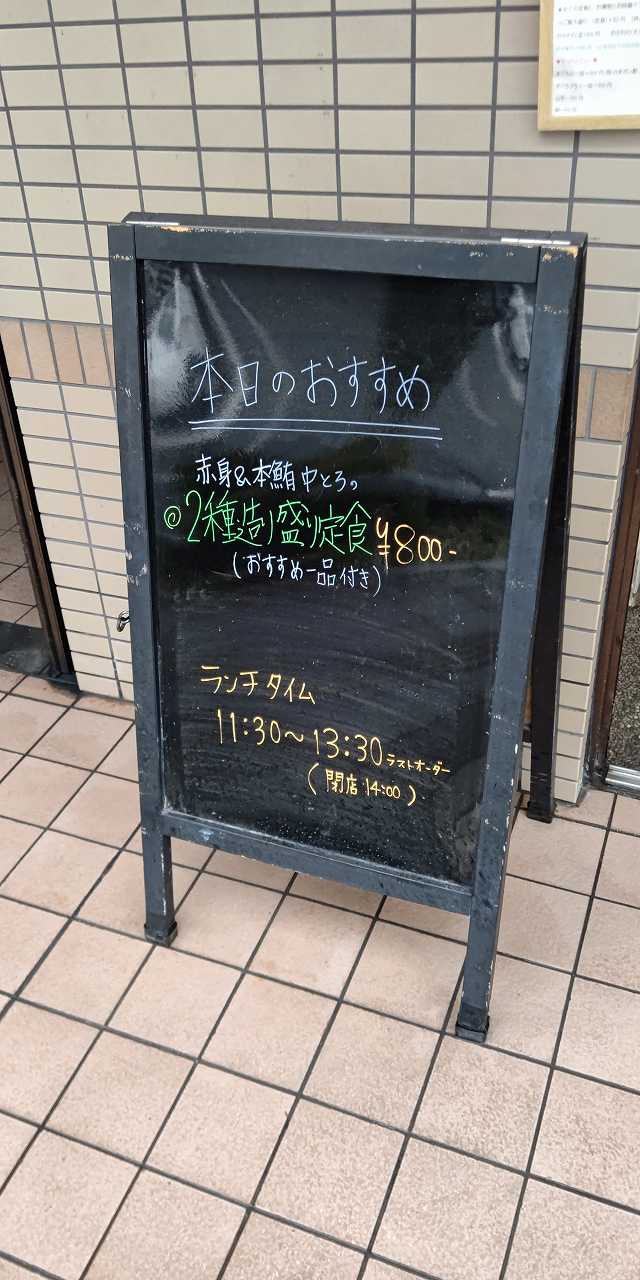 本日のおすすめ
赤身&本鮪中とろの
◎2種造り盛り定食 ¥800-
(おすすめ一品付き)
ランチタイム
11:30〜13:30 ラストオーダー
(閉店 14:00)